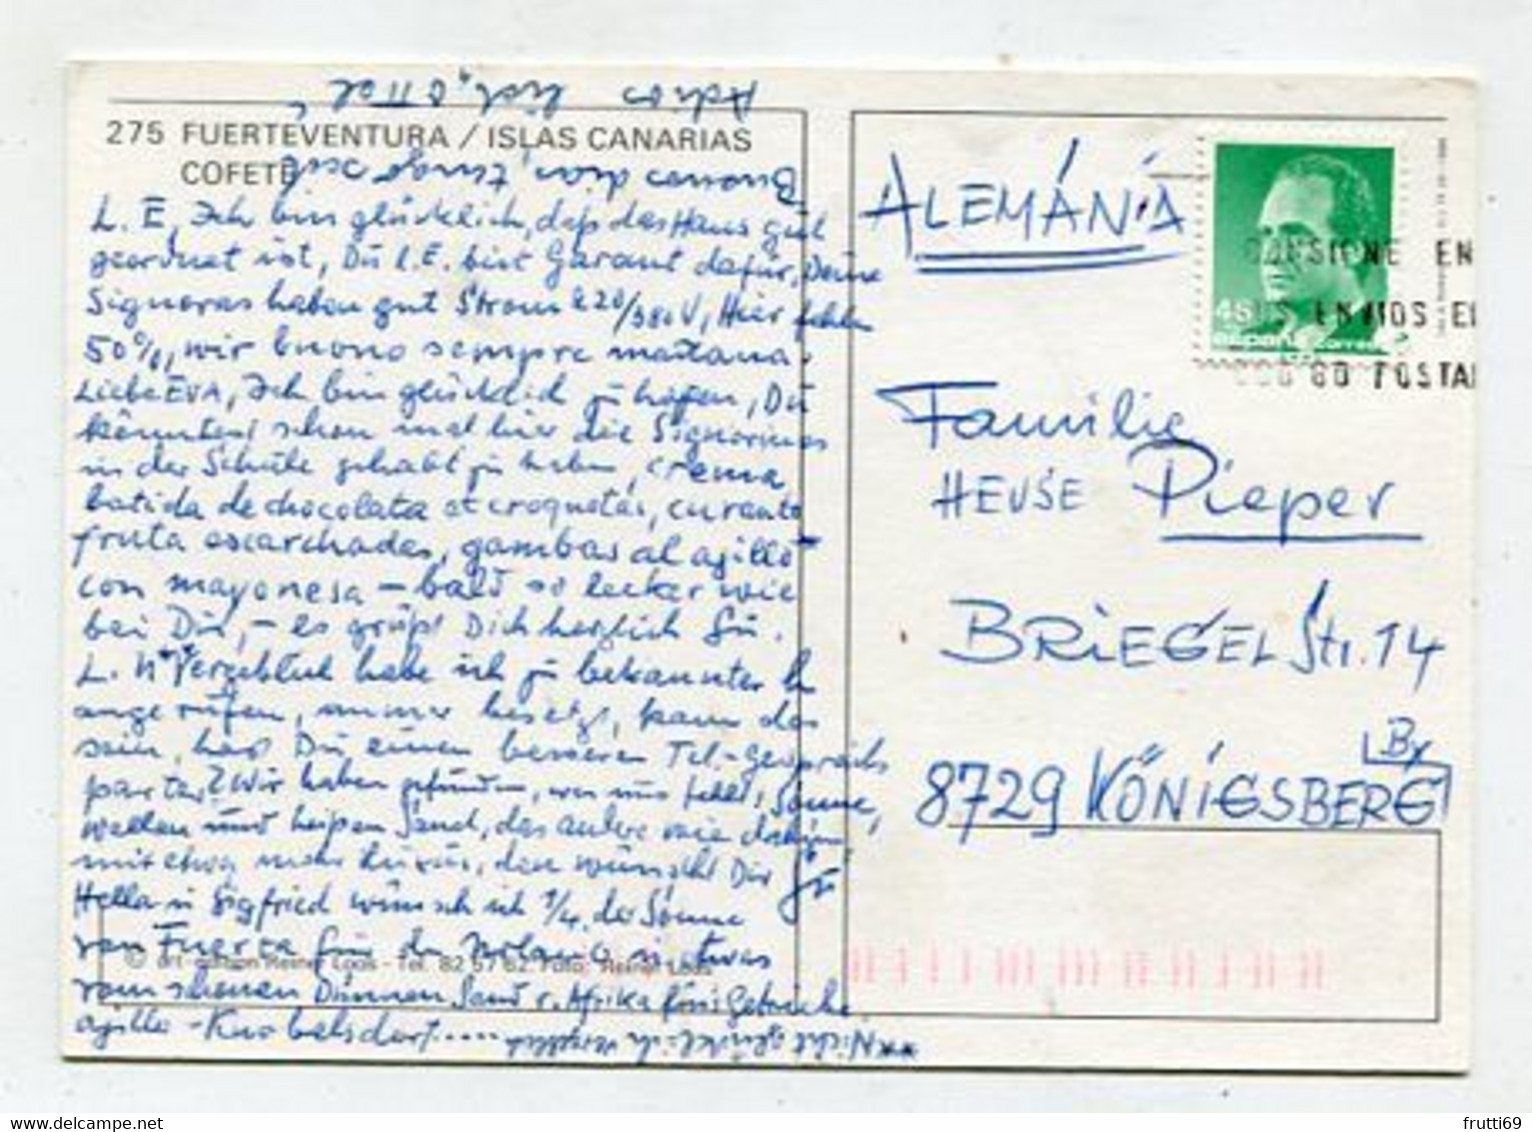 Adios
275 FUERTEVENTURA / ISLAS CANARIAS
COFETE
Buenos dias,
L. E, Ich bin glücklich, daß das Haus gut
geordnet ist, Du l. E. bist Garant dafür, Deine
Signoras haben gut Strom 220/380 V, Hier fehlen
50%, wir buono sempre mañana.
Liebe EVA, Ich bin glücklich zu hoffen, Du
könntest schon mal hier die Signorinas
in der Schule gehabt zu haben, crema,
batida de chocolata et croquetas,
fruta escarchadas, gambas al ajillo
con mayonesa – bald so lecker wie
bei Dir, – es grüßt Dich herzlich
L. Vergeblich habe ich zu bekannter
angerufen, immer besetzt, kann das
sein, hast Du einen besseren Tel-Gesprächs
partner? Wir haben gefunden, was uns fehlt, Sonne,
Wellen und heißen Sand, das andere wie daheim
mit etwas mehr Luxus, den wünscht Dir
Hella u Sigfried wünsch ich 1/4 der Sonne
von Fuerta für den u etwas
© art-edition Reiner Loos - Tel. 82 57 62. Foto: Reiner Loos
vom schönen Dünnen Sand v. Afrika fürs
ajillo - Knobelsdorf.....
** Nicht glücklich
ALEMÁNIA
46
españa correos
CONSIGNE EN
SUS ENVIOS EL
CODIGO POSTAL
Familie
HEUSE Pieper
BRIEGEL Str. 14
By
8729 KÖNIGSBERG
frutti69